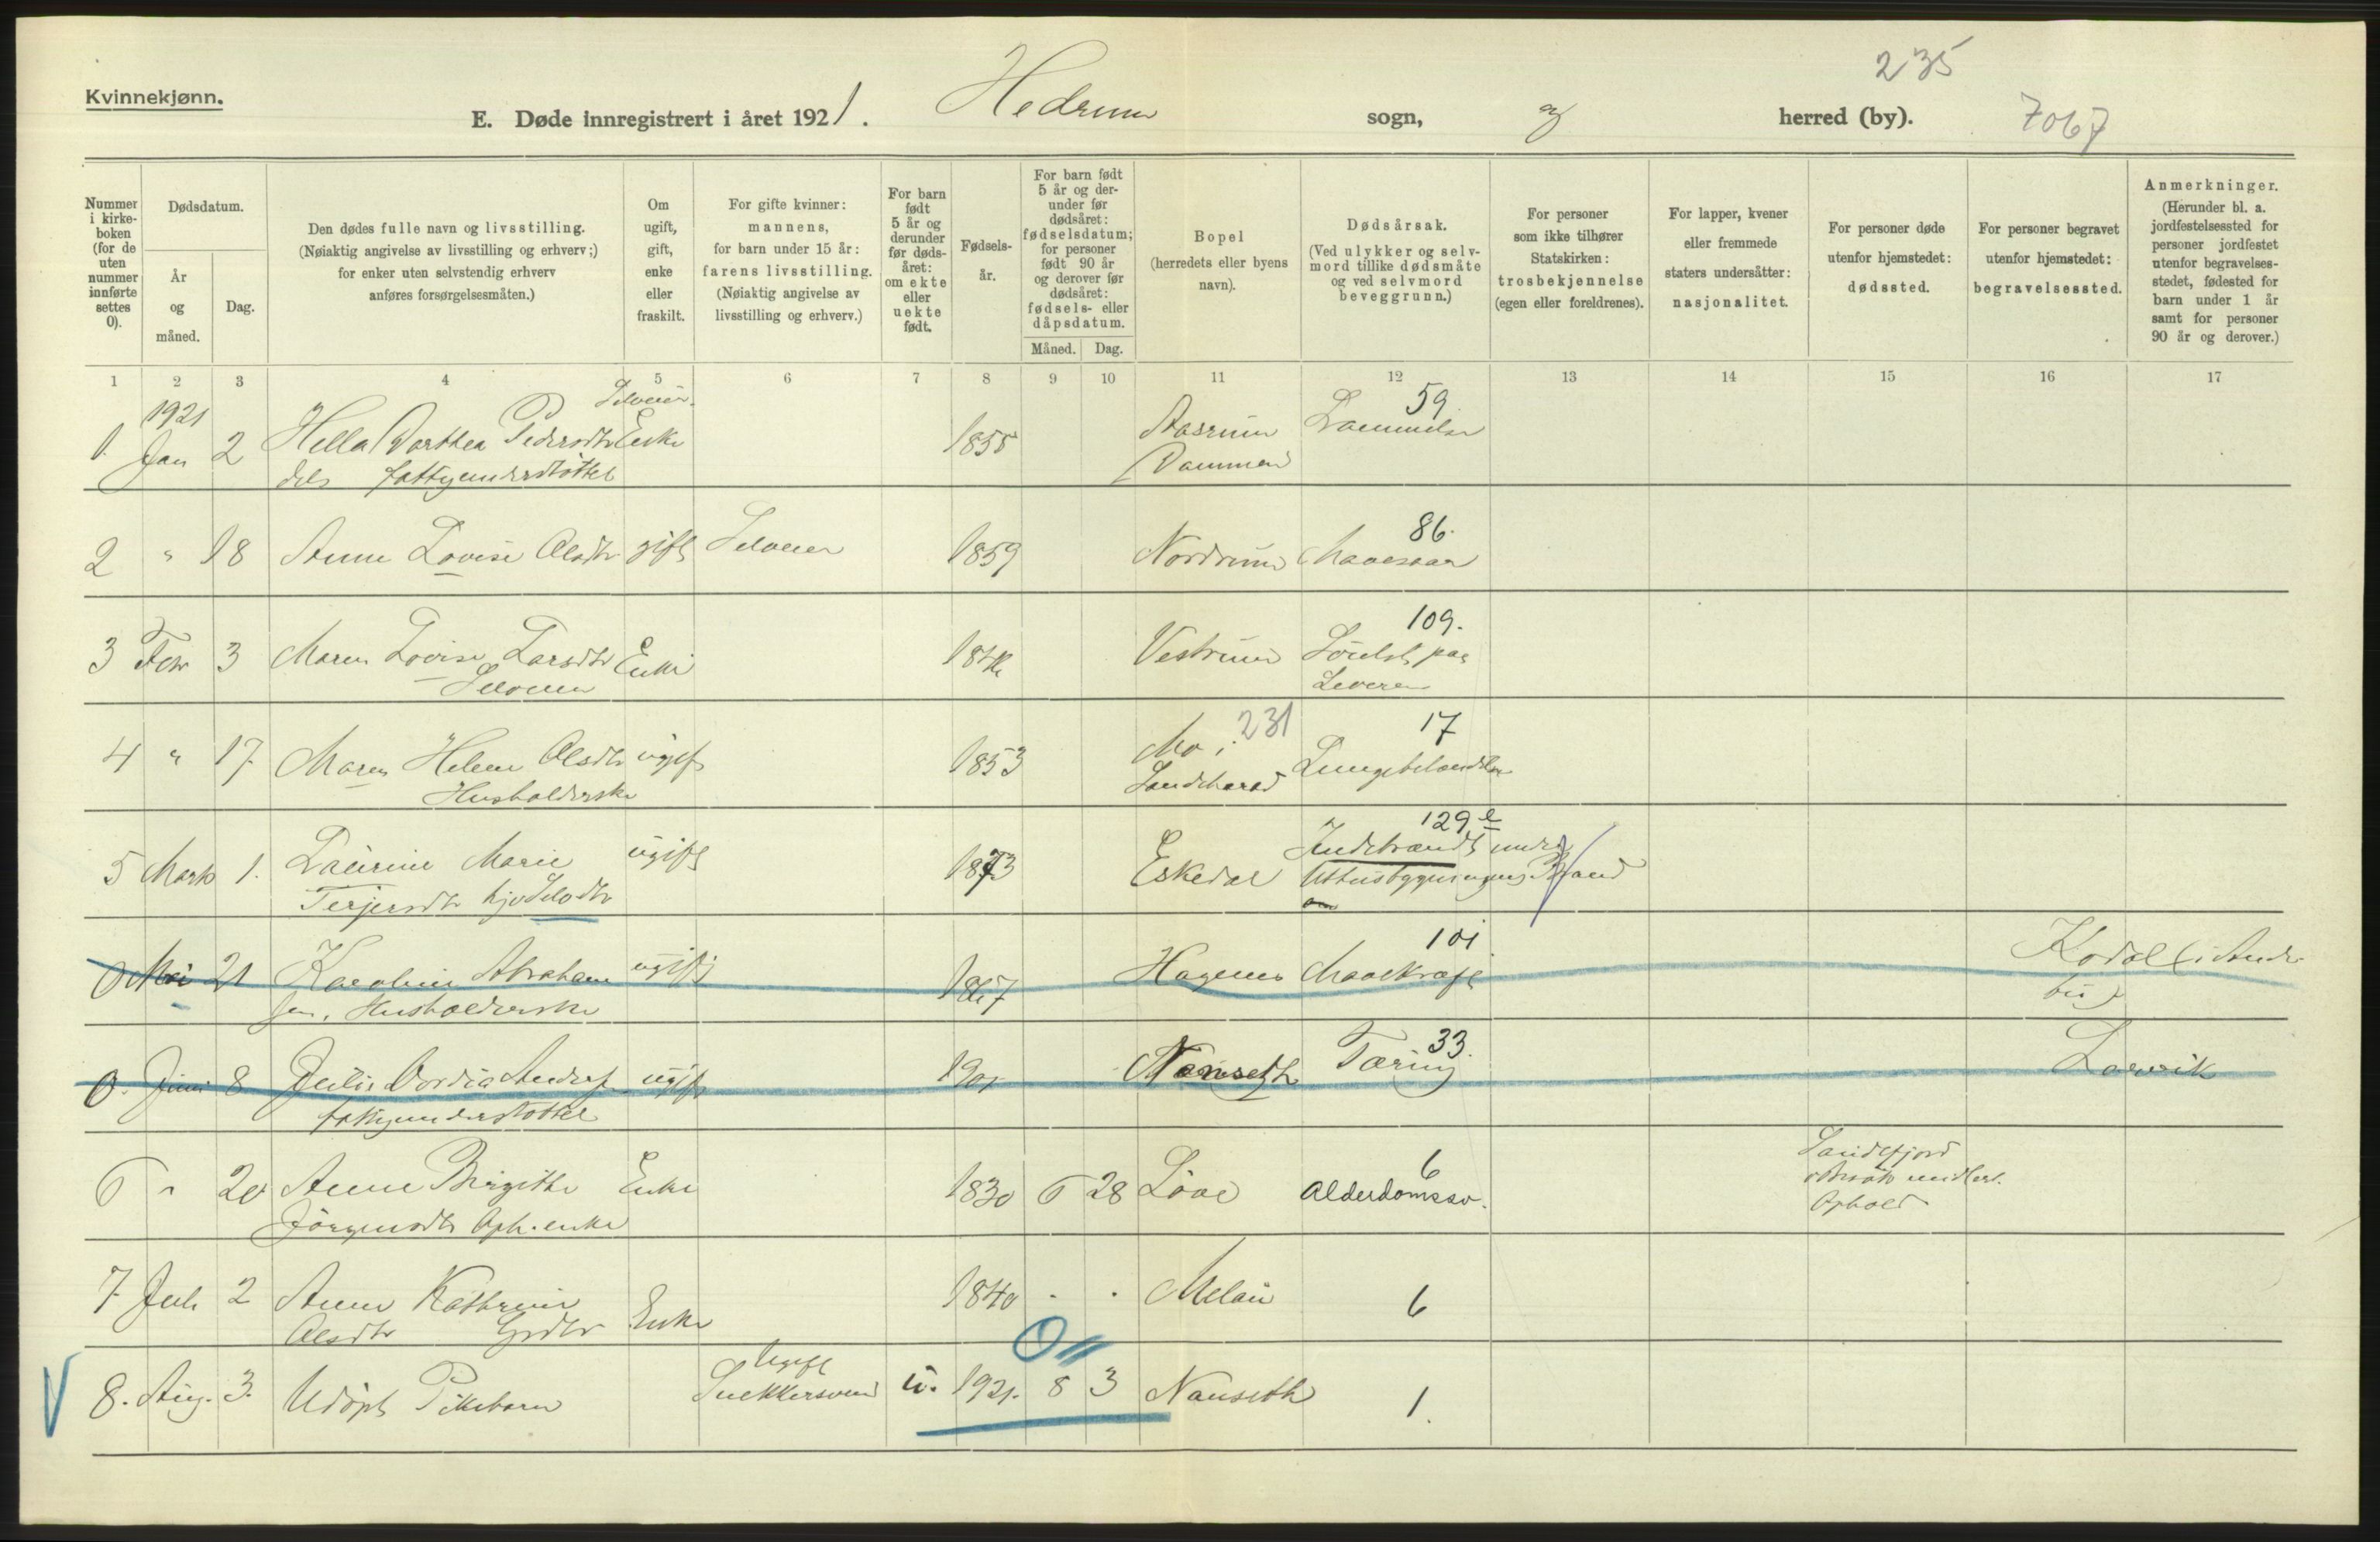 235
Kvinnekjønn.
E. Døde innregistrert i året 1921. Hedrum sogn, og herred (by). 7067
Nummer i kirke-boken (for de uten nummer innførte settes 0).
Dødsdatum.
År og måned.
Dag.
Den dødes fulle navn og livsstilling.
(Nøiaktig angivelse av livsstilling og erhverv;)
for enker uten selvstendig erhverv
anføres forsørgelsesmåten.)
Om ugift, gift, enke eller fraskilt.
For gifte kvinner:
mannens,
for barn under 15 år:
farens livsstilling.
(Nøiaktig angivelse av
livsstilling og erhverv.)
For barn født 5 år og derunder før døds-året: om ekte eller uekte født.
Fødsels-år.
For barn født 5 år og der-under før dødsåret: fødselsdatum; for personer født 90 år og derover før dødsåret: fødsels- eller dåpsdatum.
Måned. Dag.
Bopel
(herredets eller byens
navn).
Dødsårsak.
(Ved ulykker og selv-
mord tillike dødsmåte
og ved selvmord
beveggrunn.)
For personer
som ikke tilhører
Statskirken:
trosbekjennelse
(egen eller foreldrenes).
For lapper, kvener
eller fremmede
staters undersåtter:
nasjonalitet.
For personer døde
utenfor hjemstedet:
dødssted.
For personer begravet
utenfor hjemstedet:
begravelsessted.
Anmerkninger.
(Herunder bl. a.
jordfestelsessted for
personer jordfestet
utenfor begravelses-
stedet, fødested for
barn under 1 år
samt for personer
90 år og derover.)
1 2 3 4 5 6 7 8 9 10 11 12 13 14 15 16 17
1921 59.
1. Jan 2 Hella Dorthea Pedersdtr Enke 1855 Aasrum
dels fattigunderstøttet Dammen
86.
2 " 18 Anne Lovise Olsdtr gift Selveier 1859 Nordrum Mavesaar
109.
3 Febr 3 Maren Lovise Larsdtr Enke Vestrum Svulst paa
Selveier Leveren
231 17
4 " 17 Maren Helene Olsdtr ugift 1853 Mo i Lungebetændelse
Husholderske Sandeherad
129 e
5 Marts 1. Laurine Marie ugift 1873 Eskedal Indebrændt under
Terjersdtr Uthusbygningens Brand
101
0 Mai 21 Karoline Abraham ugift 1867 Hagenes Mavekræft Kodal (i Andebu)
sen, Husholderske
33.
0. Juni 8 Julie Dordia Anders. ugift Nanseth Tæring Larvik
fattigunderstøttet
6
6 " 20 Anne Birgithe Enke 1830 6 28 Løve Alderdomssv. Sandefjord
Jörgensdtr Oph.enke Ophold
7 Juli 2 Anne Kathrine Enke 1840 " " Melau 6
Olsdtr Grdbr
Ugift
8. Aug. 3. Udøpt Pikebarn Snekkersvend u. 1921. 8 3 Nanseth 1.